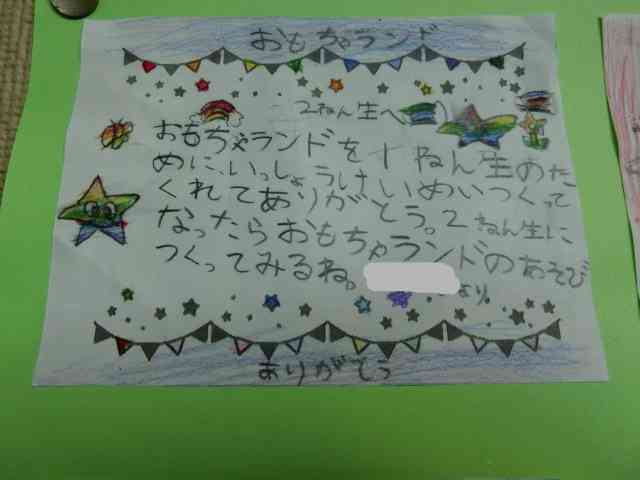 おもちゃランド
2ねん生へ
おもちゃランドを1ねん生のた
めに、いっしょうけいめいつくって
くれてありがとう。2ねん生に
なったらおもちゃランドのあそび
つくってみるね。
より
ありがとう